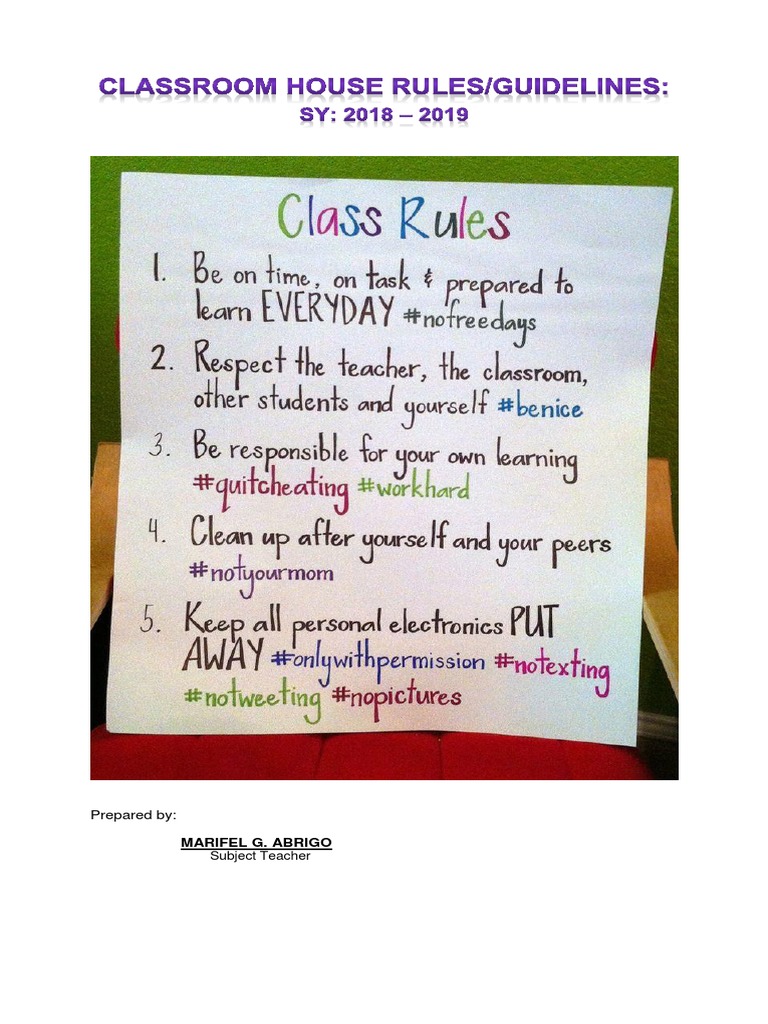 CLASSROOM HOUSE RULES/GUIDELINES:
SY: 2018 – 2019
Class Rules
1. Be on time, on task & prepared to
learn EVERYDAY #nofreedays
2. Respect the teacher, the classroom,
other students and yourself #benice
3. Be responsible for your own learning
#quitcheating #workhard
4. Clean up after yourself and your peers
#notyourmom
5. Keep all personal electronics PUT
AWAY #onlywithpermission #notexting
#notweeting #nopictures
Prepared by:
MARIFEL G. ABRIGO
Subject Teacher